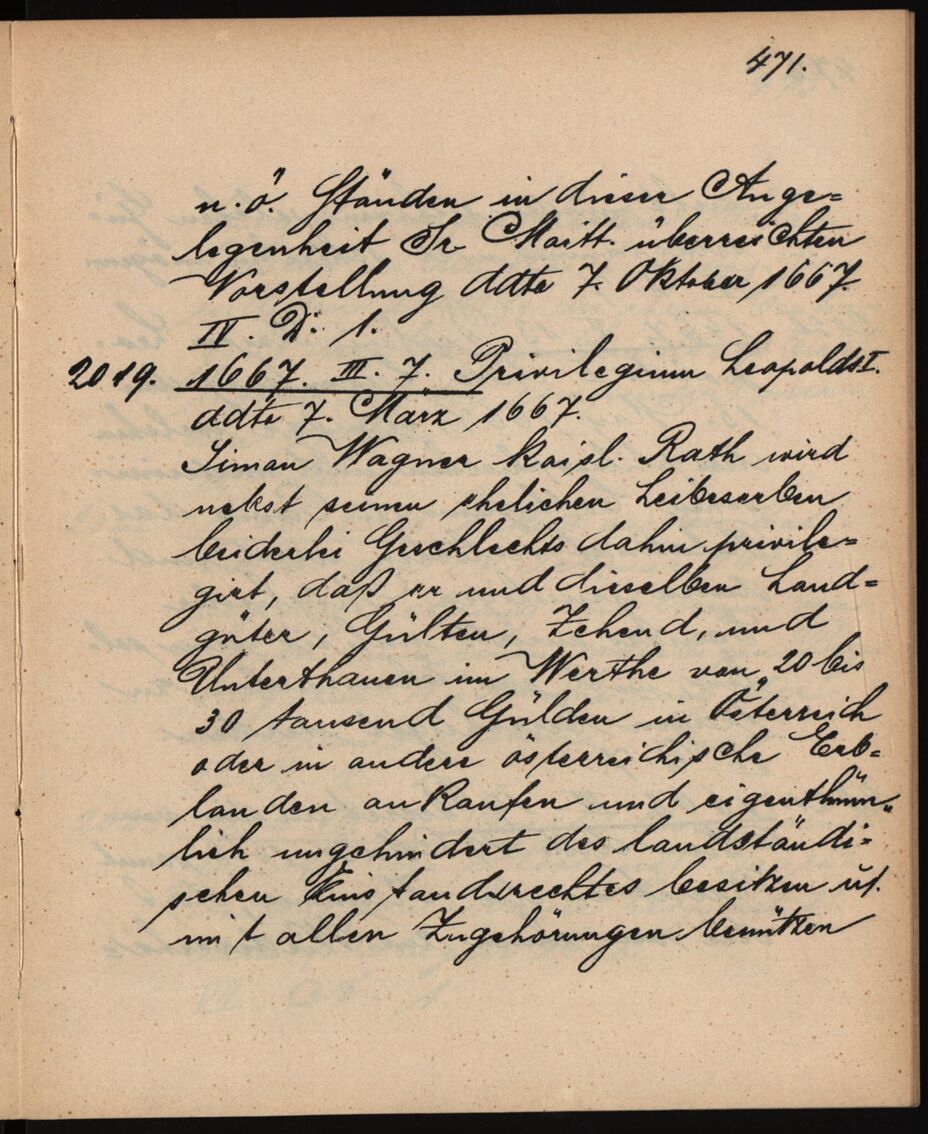 471.
n. ö. Ständen in dieser Ange=
legenheit Sr Maitt. überreichten
Vorstellung ddto 7. Oktober 1667.
IV. D. 1.
2019. 1667. III. 7. Privilegium Leopolds I.
ddto 7. März 1667.
Simon Wagner kaisl. Rath wird
nebst seinen ehelichen Leibeserben
beiderlei Geschlechts dahin privile=
girt, daß er und dieselben Land=
güter, Gülten, Zehend, und
Unterthanen im Werthe von 20 bis
30 tausend Gülden in Österreich
oder in andere österreichische Erb=
landen ankaufen und eigenthüm=
lich ungehindert des landständi=
schen Einstandrechtes besitzen u.
mit allen Zugehörungen benützen